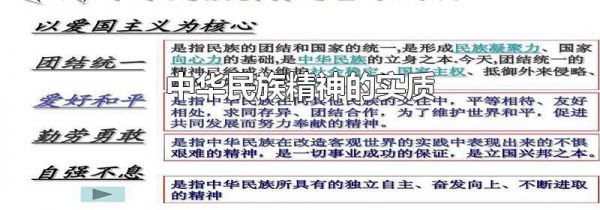 以爱国主义为核心
团结统一
是指民族的团结和国家的统一,是形成民族凝聚力、国家
向心力的基础,是中华民族的立身之本.今天,团结统一的
主权、抵御外来侵略、
中华民族精神的实质
爱好和平
交往中，平等相待、友好
相处，求同存异、团结合作，为了维护世界和平，促进
共同发展而努力奉献的精神。
勤劳勇敢
是指中华民族在改造客观世界的实践中表现出来的不惧
艰难的精神，是一切事业成功的保证，是立国兴邦之本。
自强不息
是指中华民族所具有的独立自主、奋发向上、不断进取
的精神